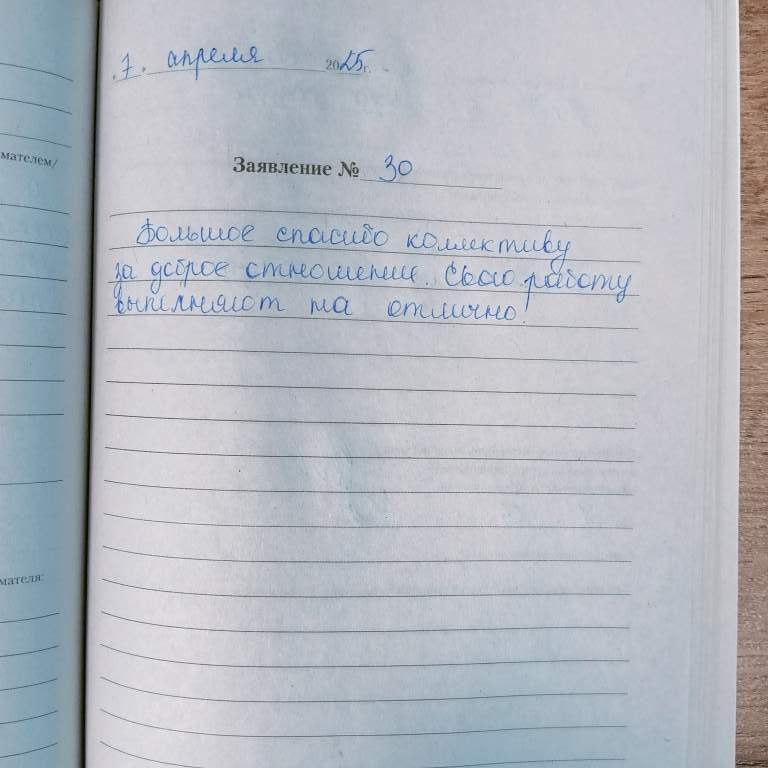 „7" апреля 2025г.
мателем/
Заявление № 30
Большое спасибо коллективу
за доброе отношение. Свою работу
выполняют на отлично!
мателя: